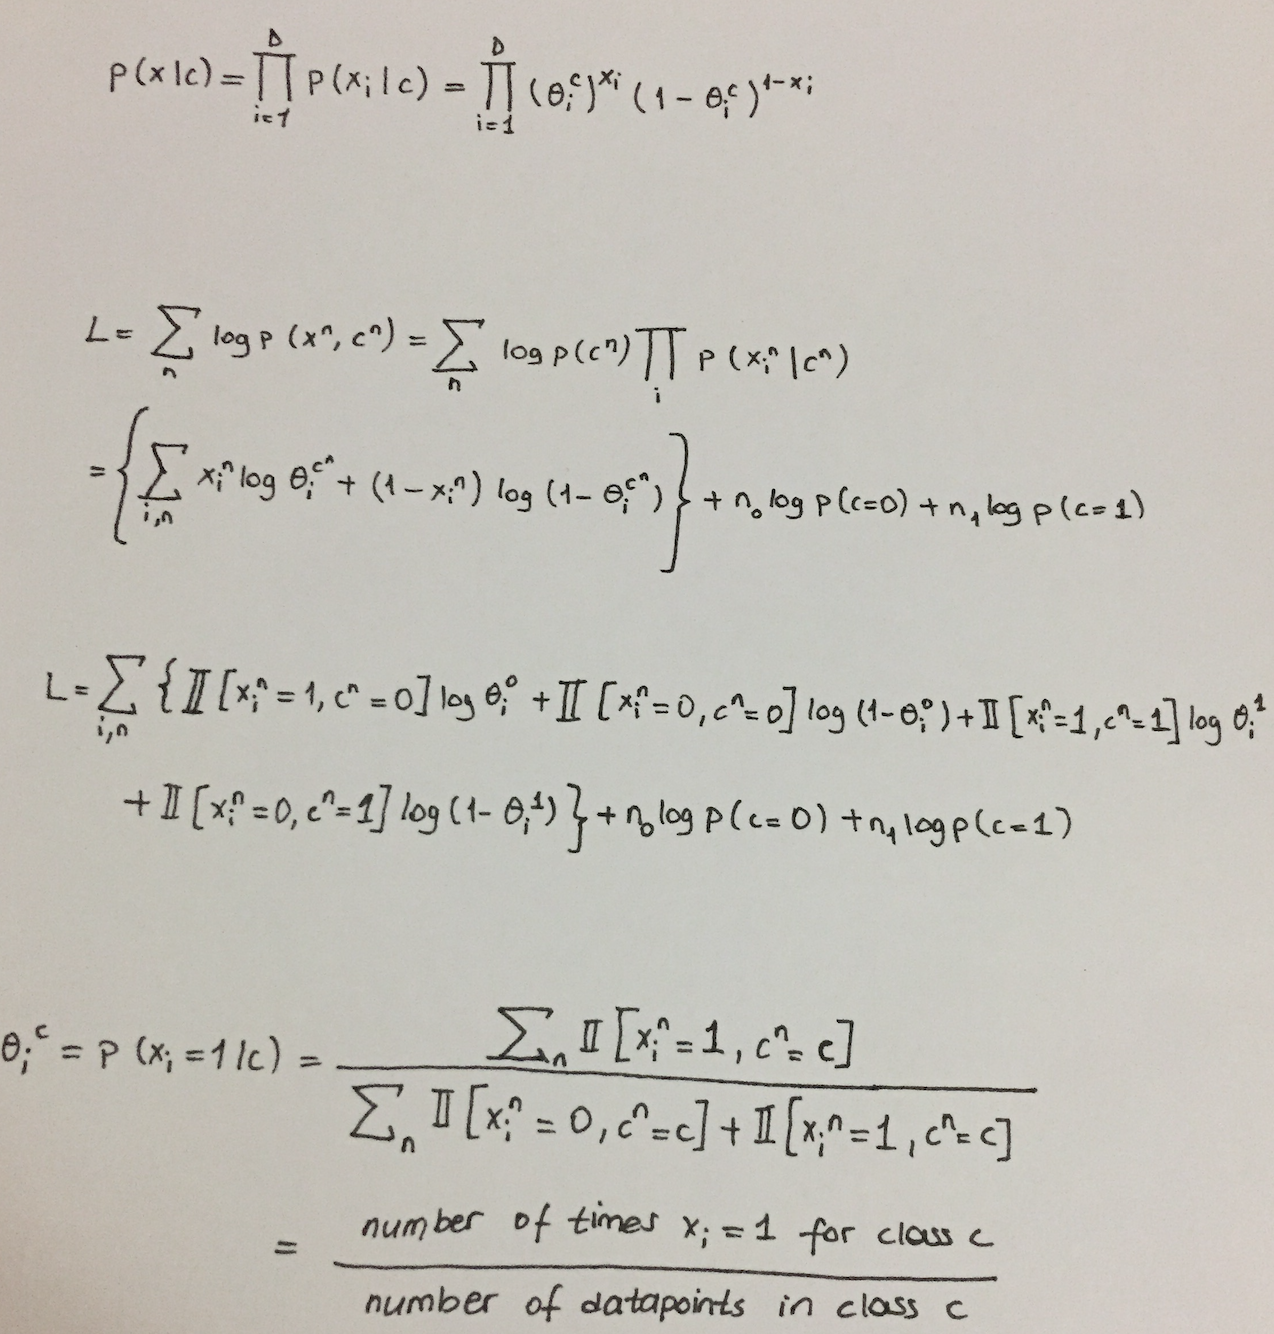 p(x|c) = ∏_{i=1}^{D} p(x_i|c) = ∏_{i=1}^{D} (θ_i^c)^{x_i} (1 - θ_i^c)^{1-x_i}
L = ∑_n log p(x^n, c^n) = ∑_n log p(c^n) ∏_i p(x_i^n|c^n)
= {∑_{i,n} x_i^n log θ_i^{c^n} + (1 - x_i^n) log (1 - θ_i^{c^n})} + n_0 log p(c=0) + n_1 log p(c=1)
L = ∑_{i,n} {𝕀[x_i^n = 1, c^n = 0] log θ_i^0 + 𝕀[x_i^n = 0, c^n = 0] log (1 - θ_i^0) + 𝕀[x_i^n = 1, c^n = 1] log θ_i^1
+ 𝕀[x_i^n = 0, c^n = 1] log (1 - θ_i^1)} + n_0 log p(c=0) + n_1 log p(c=1)
θ_i^c = p(x_i = 1|c) = ∑_n 𝕀[x_i^n = 1, c^n = c] / ∑_n 𝕀[x_i^n = 0, c^n = c] + 𝕀[x_i^n = 1, c^n = c]
= number of times x_i = 1 for class c
number of datapoints in class c